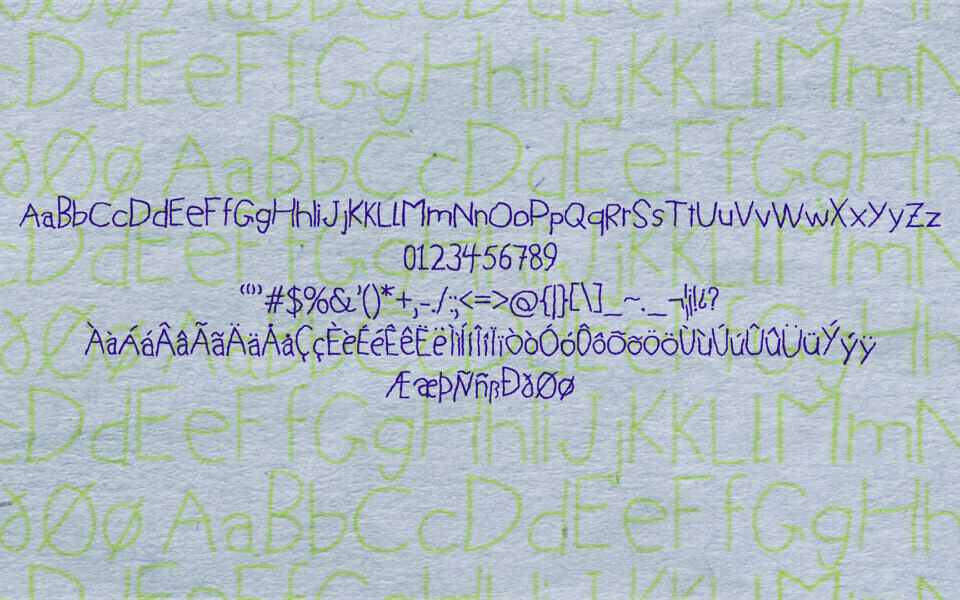 DdEeFfGgHhIiJjKKLlMmN
ðØøAaBbCcDdEeFfGgHh
AaBbCcDdEeFfGgHhIiJjKKLlMmNnOoPpQqRrSsTtUuVvWwXxYyZz
0123456789
“”"#$%&'()*+,-./:;<=>@{|}[\]_~·_¬¦¡!¿?
ÀàÁáÂâÃãÄäÅåÇçÈèÉéÊêËëÌìÍíÎîÏïÒòÓóÔôÕõÖöÙùÚúÛûÜüÝýÿ
ÆæÞÑñßÐðØø
DdEeFfGgHhIiJjKKLlMmN
ðØøAaBbCcDdEeFfGgHh